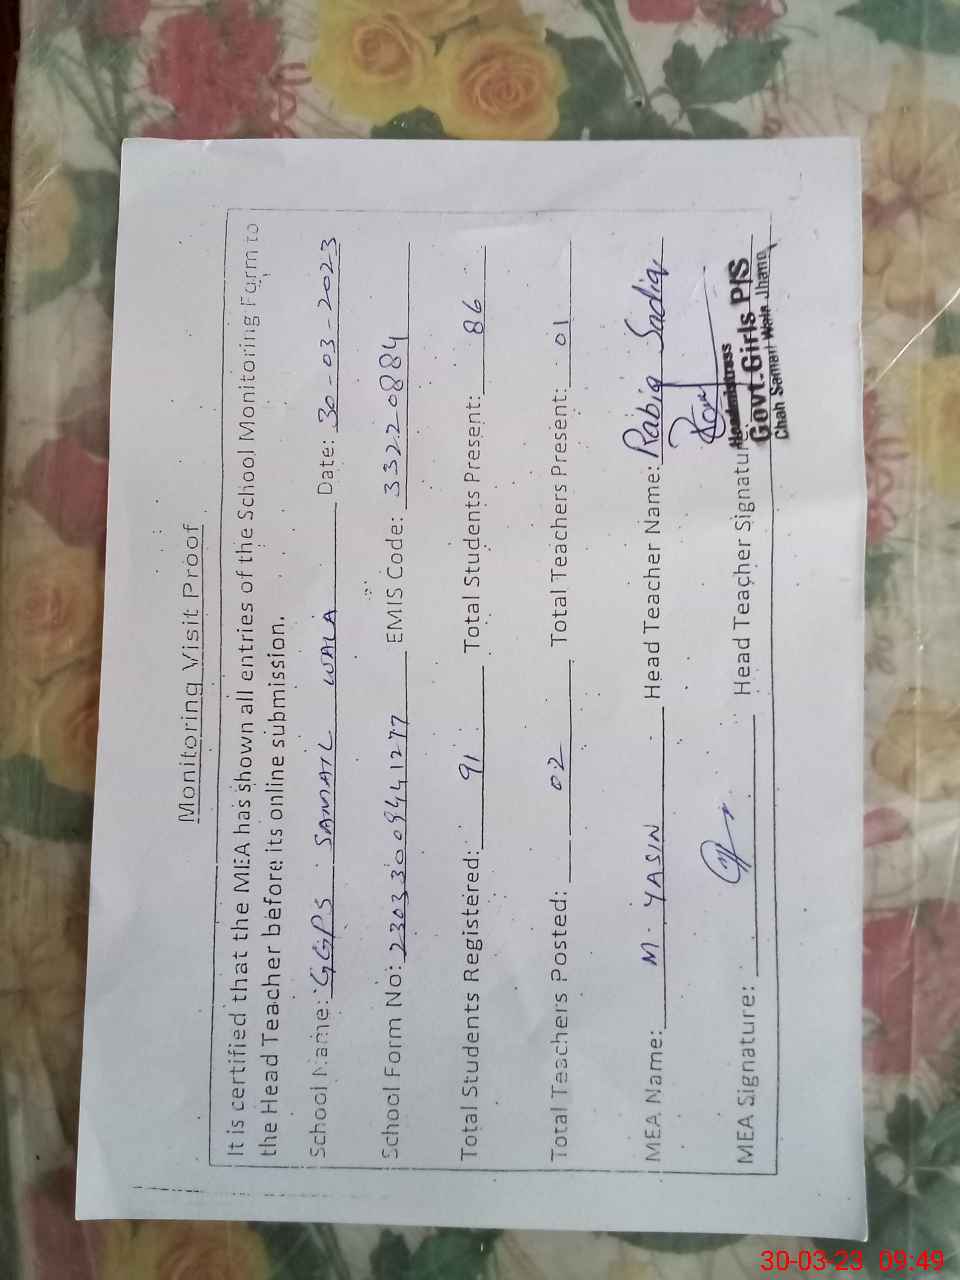 Monitoring Visit Proof
It is certified that the MEA has shown all entries of the School Monitoring Form to
the Head Teacher before its online submission.
School Name: GGPS SAMAIL WALA Date: 30-03-2023
School Form No: 23033009441277 EMIS Code: 33220884
Total Students Registered: 91 Total Students Present: 86
Total Teachers Posted: 02 Total Teachers Present: 01
MEA Name: M. YASIN Head Teacher Name: Rabia Sadiq
MEA Signature: Head Teacher Signature:
Headmistress
Govt. Girls P/S
Chah Samail Wala Jhang
30-03-23 09:49